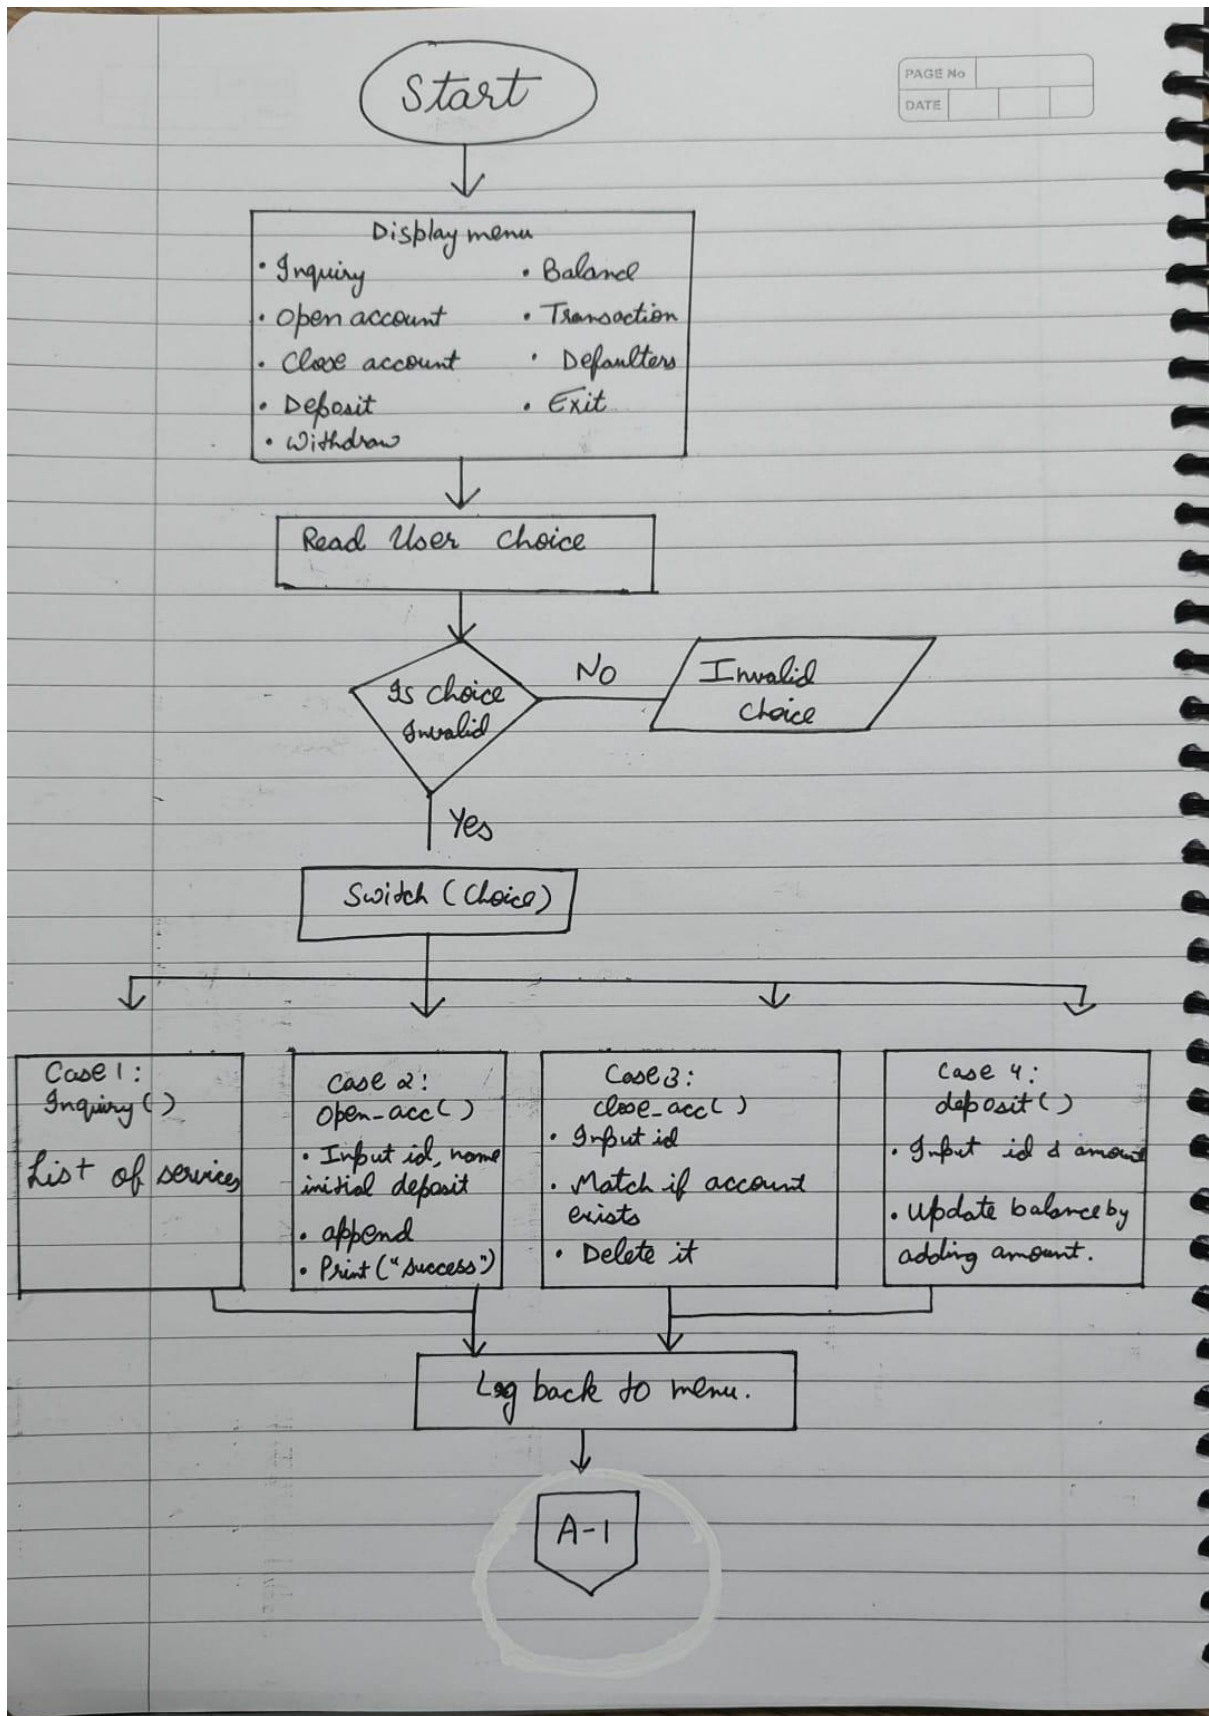 PAGE No
DATE
Start
Display menu
• Inquiry
• Open account
• Close account
• Deposit
• Withdraw
• Balance
• Transaction
• Defaulters
• Exit
Read User Choice
Is Choice
Invalid
No
Invalid
Choice
Yes
Switch (Choice)
Case 1:
Inquiry()
List of services
Case 2:
Open_acc()
• Input id, name
initial deposit
• append
• Print("success")
Case 3:
close_acc()
• Input id
• Match if account
exists
• Delete it
Case 4:
deposit()
• Input id & amount
• Update balance by
adding amount.
Log back to menu.
A-1